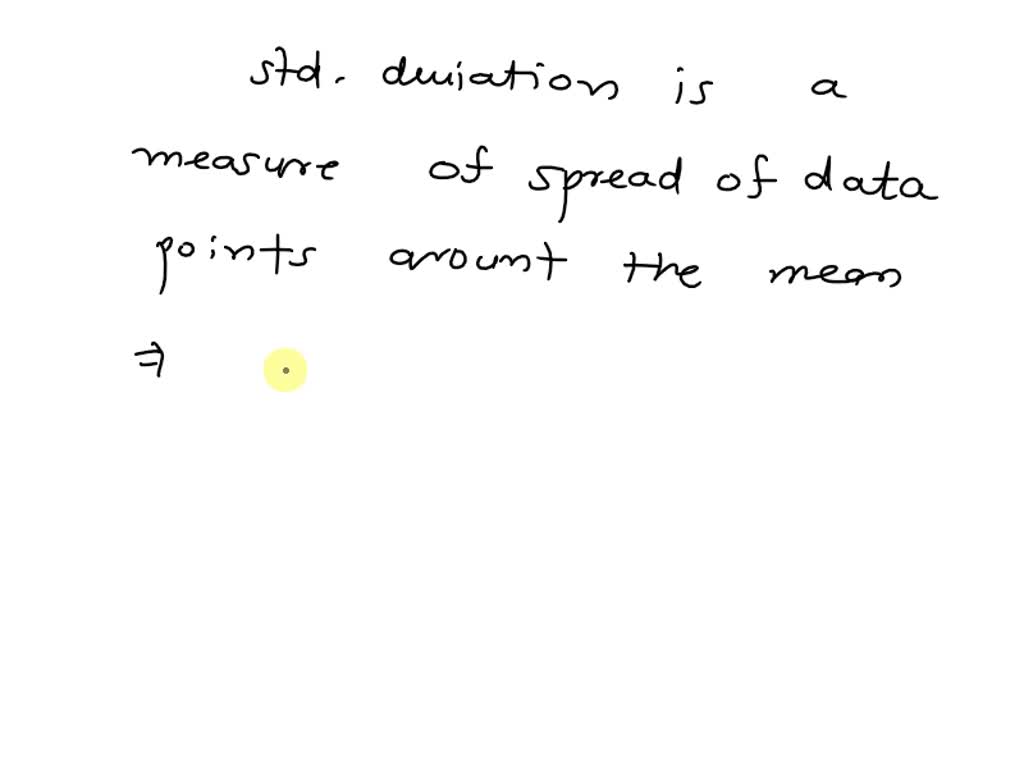 std. deviation is a
measure of spread of data
points arount the mean
⇒